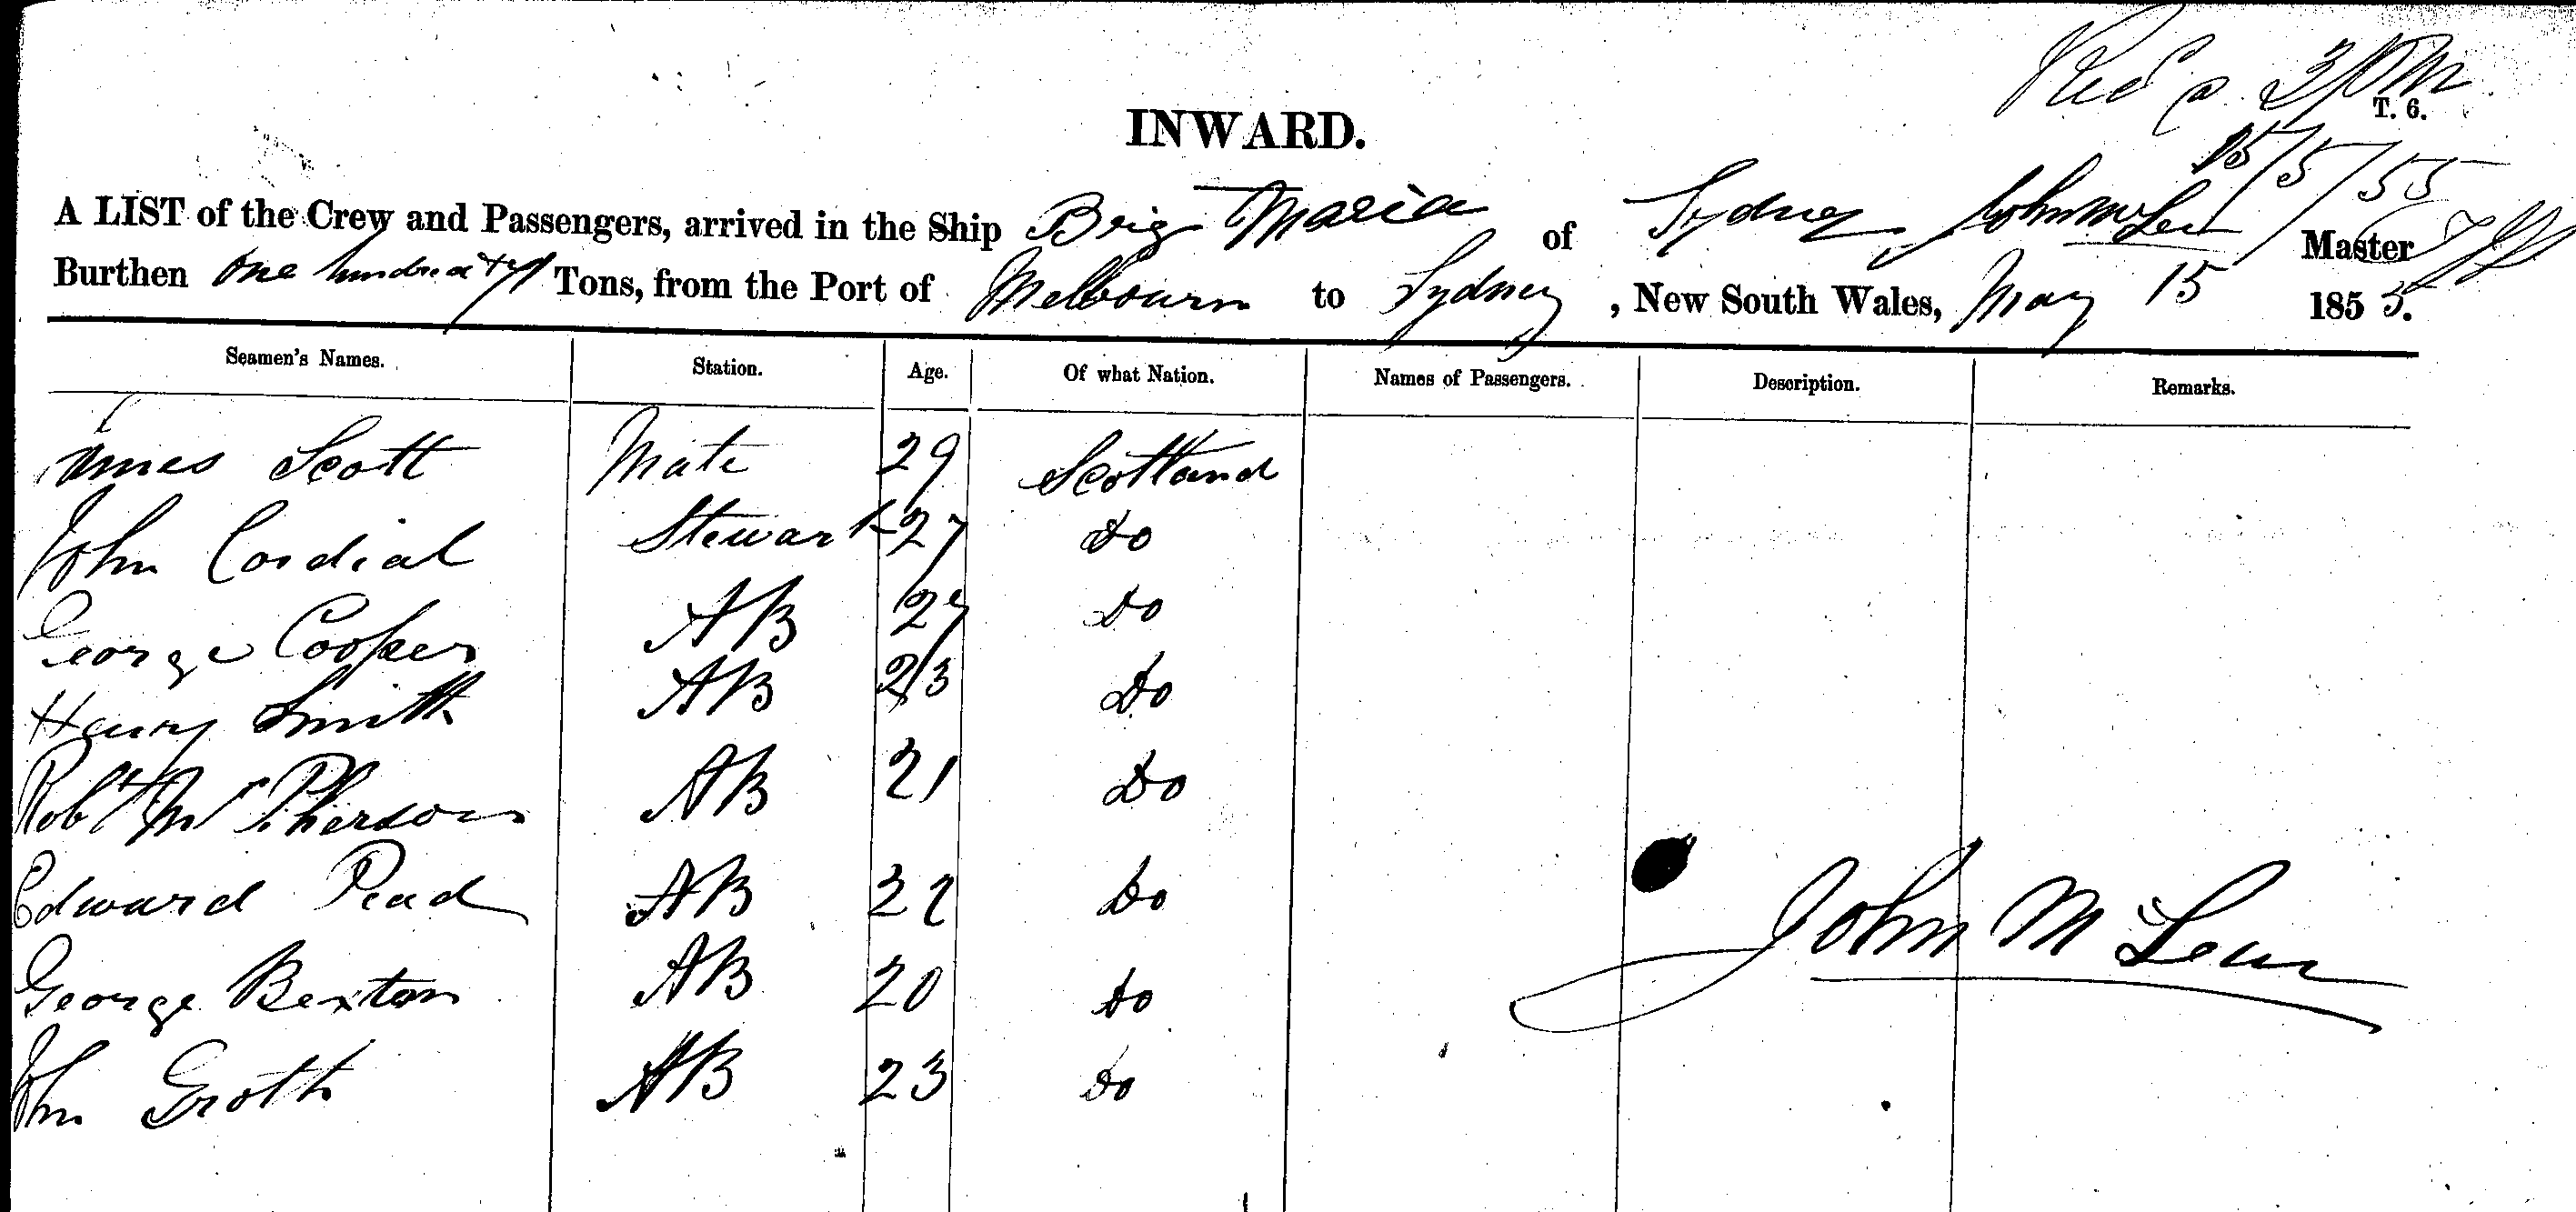 Recd @ 3 PM
T. 6.
15/5/55
INWARD.
A LIST of the Crew and Passengers, arrived in the Ship Brig Maria of Sydney, John McLean Master
Burthen one hundred Tons, from the Port of Melbourn to Sydney, New South Wales, May 15 1855.
Seamen's Names. Station. Age. Of what Nation. Names of Passengers. Description. Remarks.
James Scott Mate 29 Scotland
John Cordial Stewart 27 Do
George Cooper AB 27 Do
Henry Smith AB 23 Do
Robt McPherson AB 21 Do
Edward Pead AB 22 Do
George Bexton AB 20 Do
John Groth AB 23 Do
John McLean